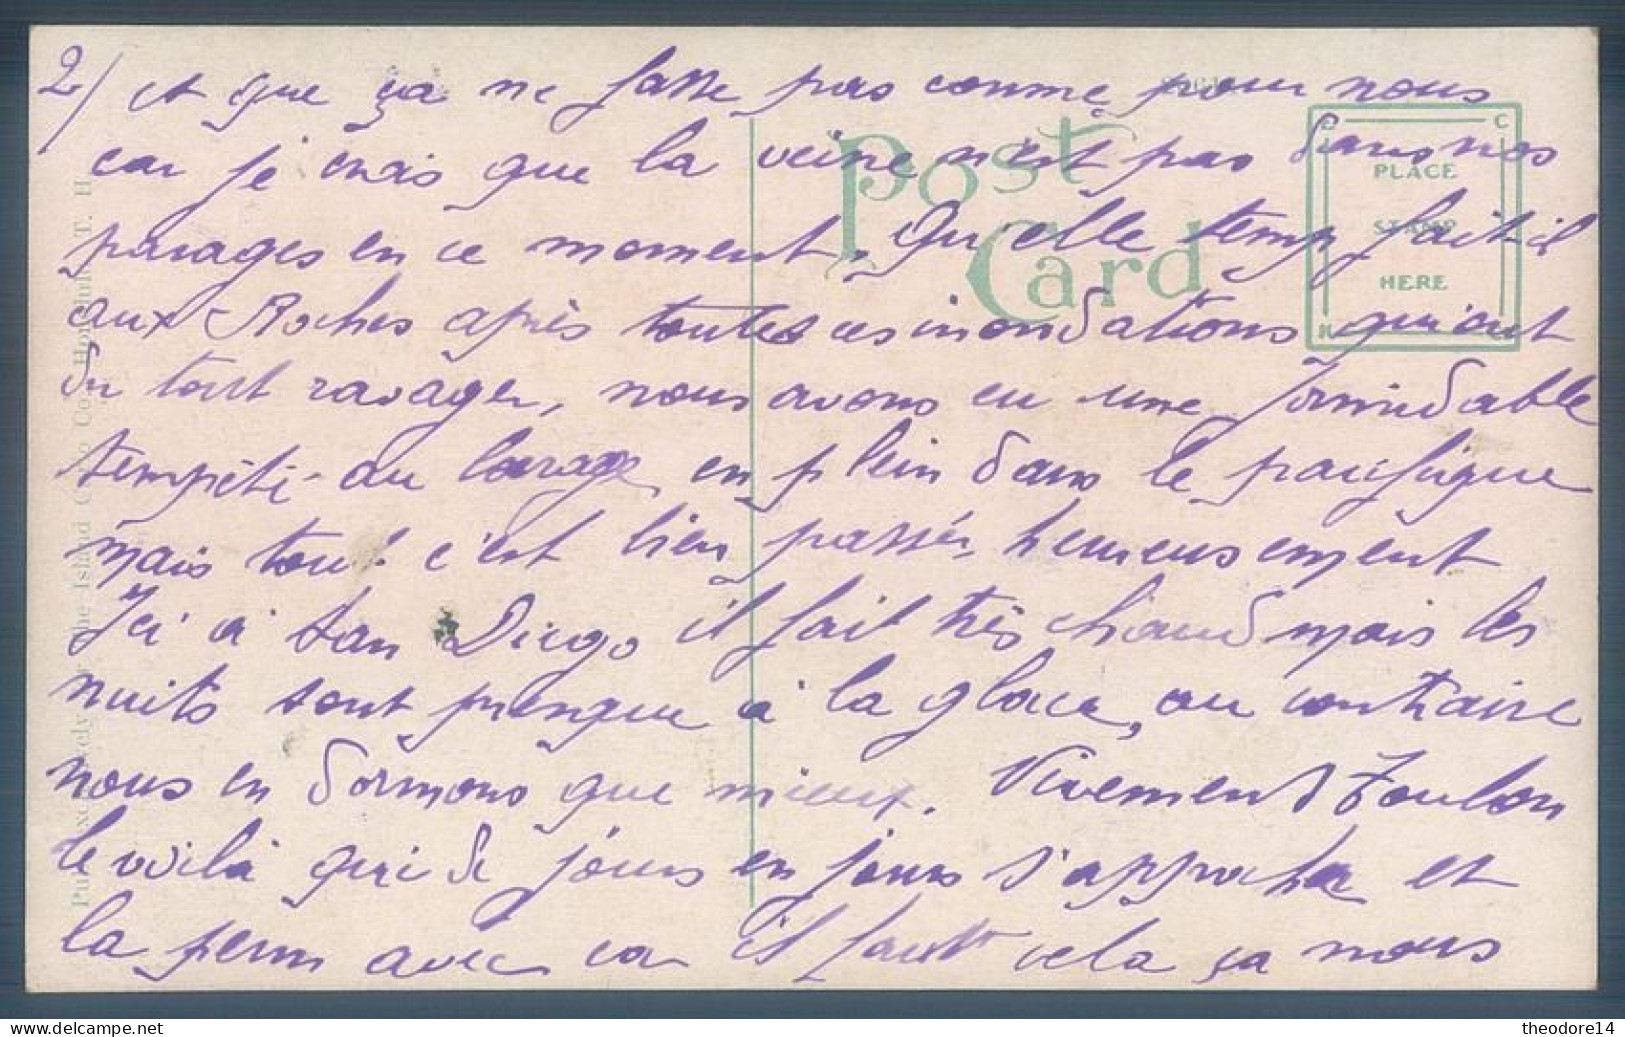 2/ et que ça ne fasse pas comme pour nous
car je crois que la veine n'est pas dans nos
parages en ce moment. Qu'elle temp fait-il
aux Roches après toutes ces inondations qui ont
du tout ravager, nous avons eu une formidable
tempête au large en plein dans le pacifique
mais tou! c'est bien passér heureusement
Ici à San Diego il fait très chaud mais les
nuits sont presque à la glace, au contraire
nous en dormons que mieux. Vivement Toulon
le voilà qui de jours en jours s'approche et
la perm avec car il faut cela ça nous
POST CARD
PLACE STAMP HERE
the Island Co. Honolulu T. H.
theodore14